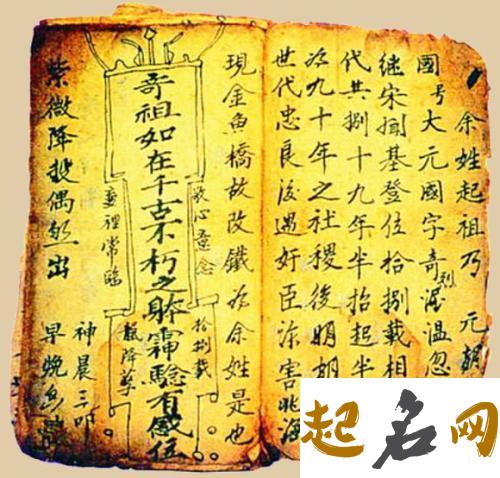 余姓起祖乃元朝
國号大元國字奇列渥温忽
继宋掴基登位拾捌載相
代共捌十九年半抬起半
为九十年之社稷後明朝
世代忠良後遇奸臣涂害
現金魚橋故改鐵为余姓是也
心意念
拾捌載
龍降
奇祖如在千古不朽之躰霝驗有感位
裡常臨
紫微降投偶然出
神晨三叩
早晚
起名网